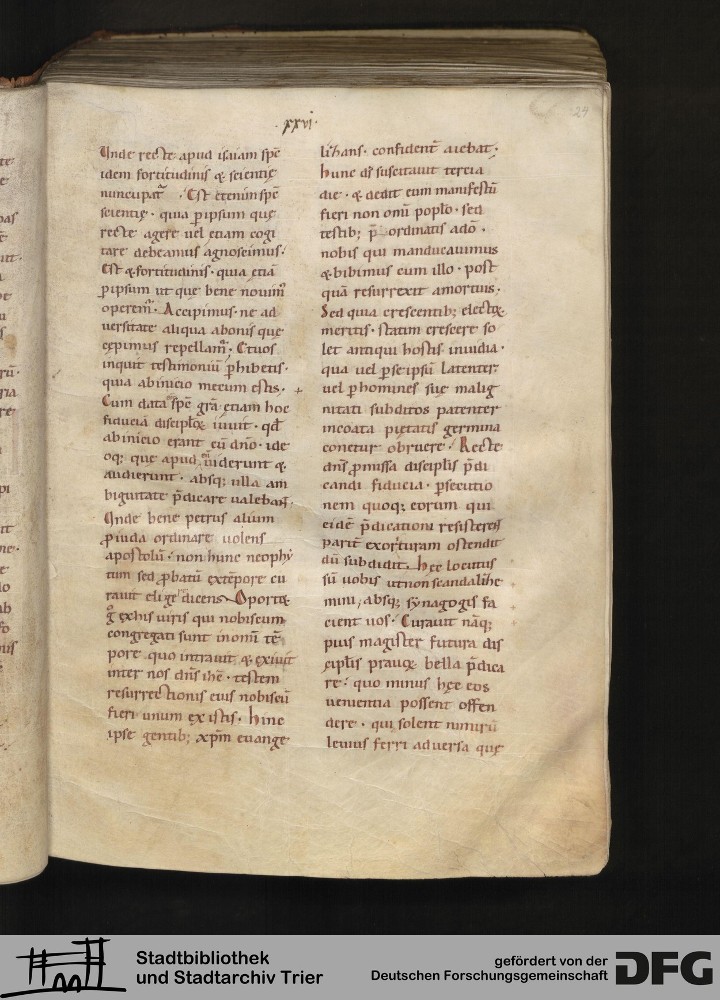 ·xxvi·
29
Unde recte apud isaiam spc̄
idem fortitudinis & scientię
nuncupat᷒ · Est etenim spc̄
scientię · quia p̱ ipsum quę
recte agere vel etiam cogi
tare debeamus agnoscimus ·
Est & fortitudinis · quia etiā
p̱ ipsum ut quę bene novim᷒
operem᷒ · Accipimus · ne ad
versitate aliqua abonis quę
cępimus repellam᷒ · Et uos
inquit testimoniū p̱hibetis ·
quia ab inicio mecum estis ·
Cum data spc̄ grā etiam hoc
fiduciā discip̄lọ iuuit · qd̄
ab inicio erant cū dn̄o · ide
oq; que apud eū uiderunt &
audierunt · absq; ulla am
biguitate p̄dicare ualebant
Unde bene petrus alium
p̱ iuda ordinare uolens
apostolū · non hunc neophy
tum sed p̱batū ex tēpore cu
rauit elige dicens Oport&
g̊ ex his uiris qui nobiscum
congregati sunt in omni tē
pore quo intrauit & exiuit
inter nos dn̄s ihc̄ · testem
resurrectionis eius nobiscū
fieri unum ex istis · hinc
ipse gentib; xp̄m euange
lizans · confident᷒ aiebat ·
hunc ds̄ suscitauit tercia
die · & dedit eum manifestū
fieri non omi poplo · sed
testib; p̄ordinatis a dō ·
nobis qui manducauimus
& bibimus cum illo · post
quā resurrexit a mortuis ·
Sed quia crescentib; electoꝝ
meritis · statim crescere so
let antiqui hostis inuidia ·
qua uel p̱ seipsū latenter
uel p̱ homines suę malig
nitati subditos patenter
incoata pietatis germina
conetur obruere · Recte
dn̄s p̱missa discip̄lis p̄di
candi fiducia · p̱secutio
nem quoq; eorum qui
eidē p̄dicationi resisteres
parit᷒ exorturam ostendit
dū subdidit · hec locutus
sū uobis ut non scandalize
mini, absq; synagogis fa
cient uos · Curauit nāq;
pius magister futura dis
cip̄lis prauoꝝ bella p̄dica
re · quo minus hęc eos
uenientia possent offen
dere · qui solent nimirū
leuius ferri aduersa quę
Stadtbibliothek
und Stadtarchiv Trier
gefördert von der
Deutschen Forschungsgemeinschaft
DFG